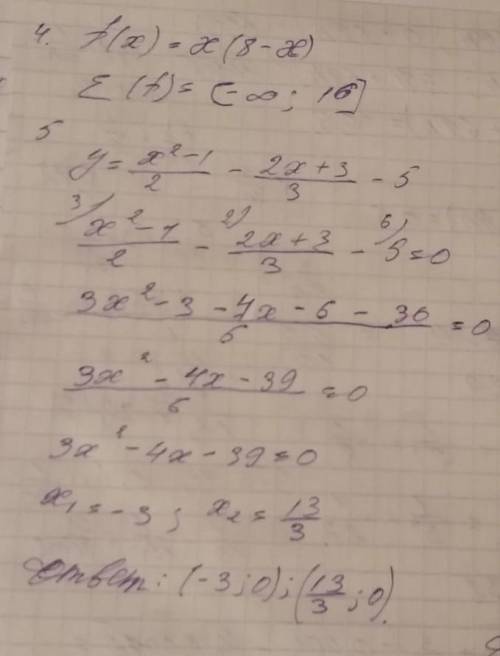 4. f(x) = x(8-x)
E(f) = (-∞; 16]
5
y = (x²-1)/2 - (2x+3)/3 - 5
3) (x²-1)/2 - 2) (2x+3)/3 - 6) 5 = 0
(3x²-3-4x-6-30)/6 = 0
(3x²-4x-39)/6 = 0
3x²-4x-39=0
x₁=-3; x₂=13/3
Ответ: (-3;0); (13/3;0).